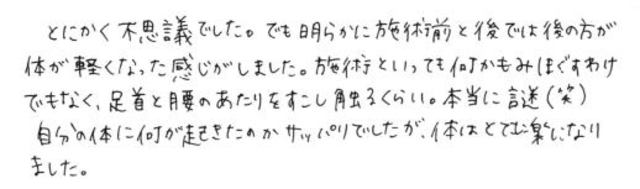 とにかく不思議でした。でも明らかに施術前と後では後の方が
体が軽くなった感じがしました。施術といっても何かもみほぐすわけ
でもなく、足首と腰のあたりをすこし触るくらい。本当に謎(笑)
自分の体に何が起きたのかサッパリでしたが、体はとても楽になり
ました。